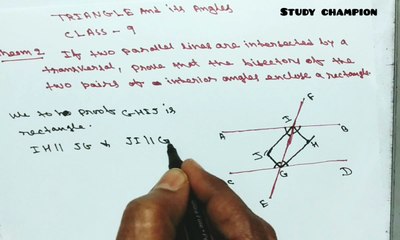 STUDY CHAMPION
TRIANGLE And its Angles
CLASS - 9
heorem 2 If two parallel lines are intersected by a
transversal, prove that the bisectors of the
two pairs of interior angles enclose a rectangle
We to proof GHIJ is
rectangle.
IH || JG & JI || G
F
I
A B
J H
C G D
E